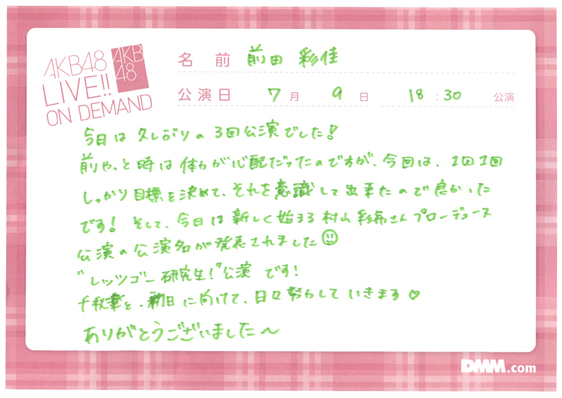 AKB48
LIVE!!
ON DEMAND
AKB
48
名前 前田 彩佳
公演日 7月 9日 18:30 公演
今日は久しぶりの3回公演でした!
前やった時は体力が心配だったのですが、今回は、1回1回
しっかり目標を決めて、それを意識して出来たので良かった
です! そして、今日は新しく始まる村山彩希さんプロデュース
公演の公演名が発表されました
"レッツゴー研究生!"公演です!
千秋楽と、初日に向けて、日々努力していきます♡
ありがとうございました〜
DMM.com